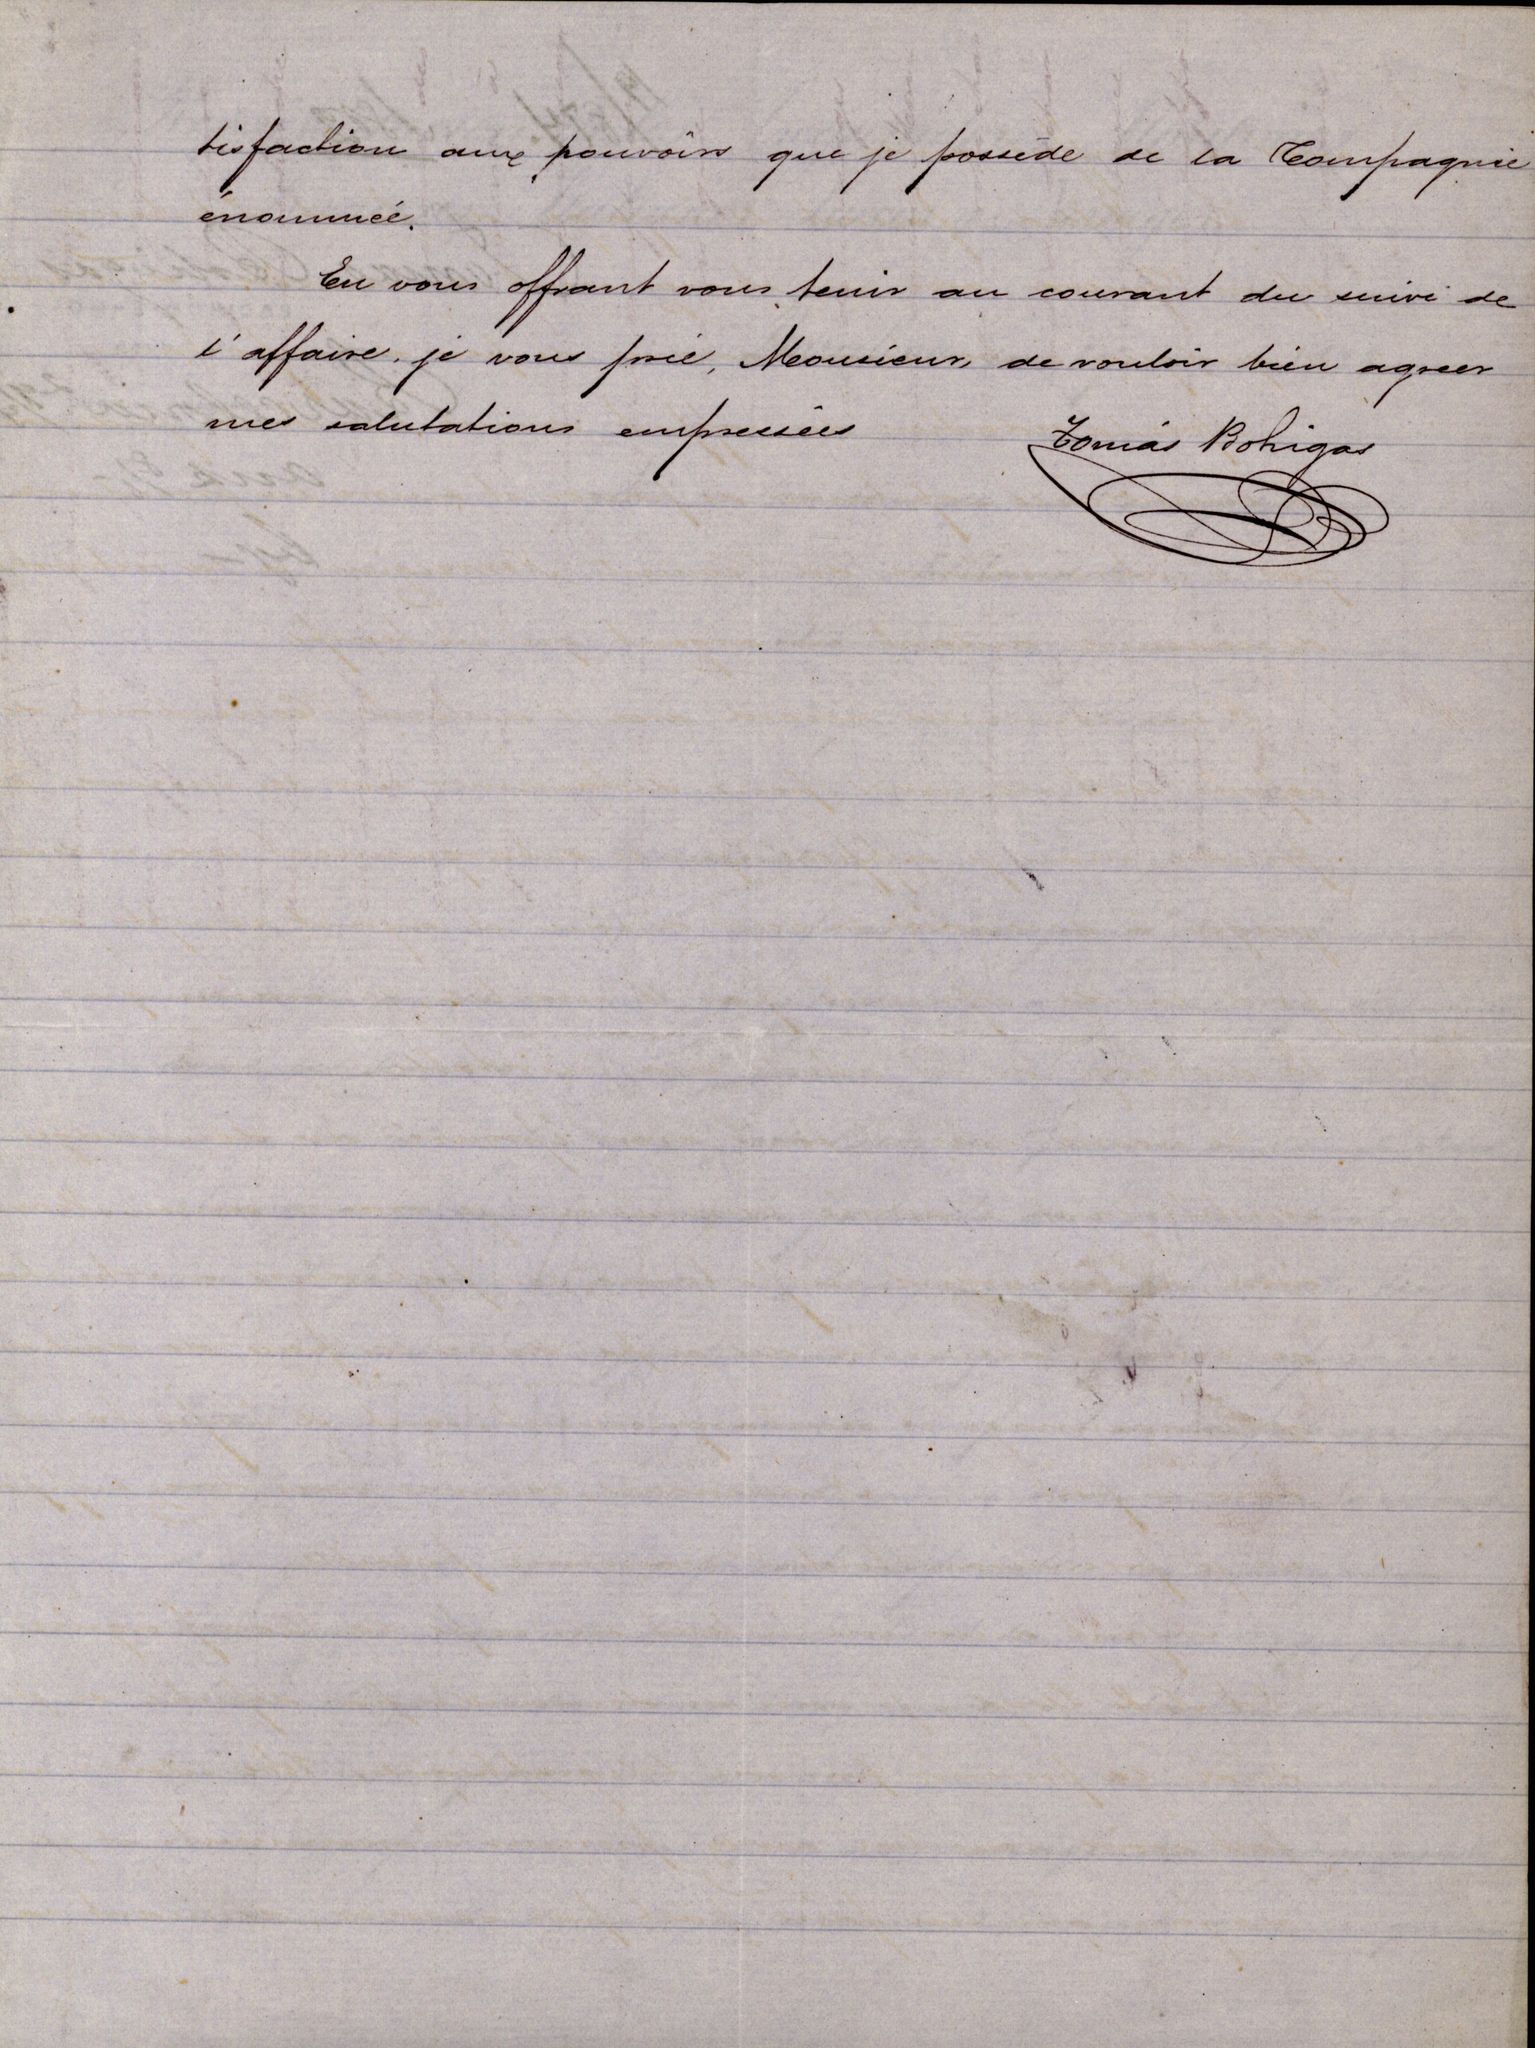 tisfaction aux pouvoirs que je possède de la Compagnie
énommée.
En vous offrant vous tenir au courant du suivi de
l'affaire, je vous prie, Monsieur, de vouloir bien agreer
mes salutations empressées
Tomás Bohigas